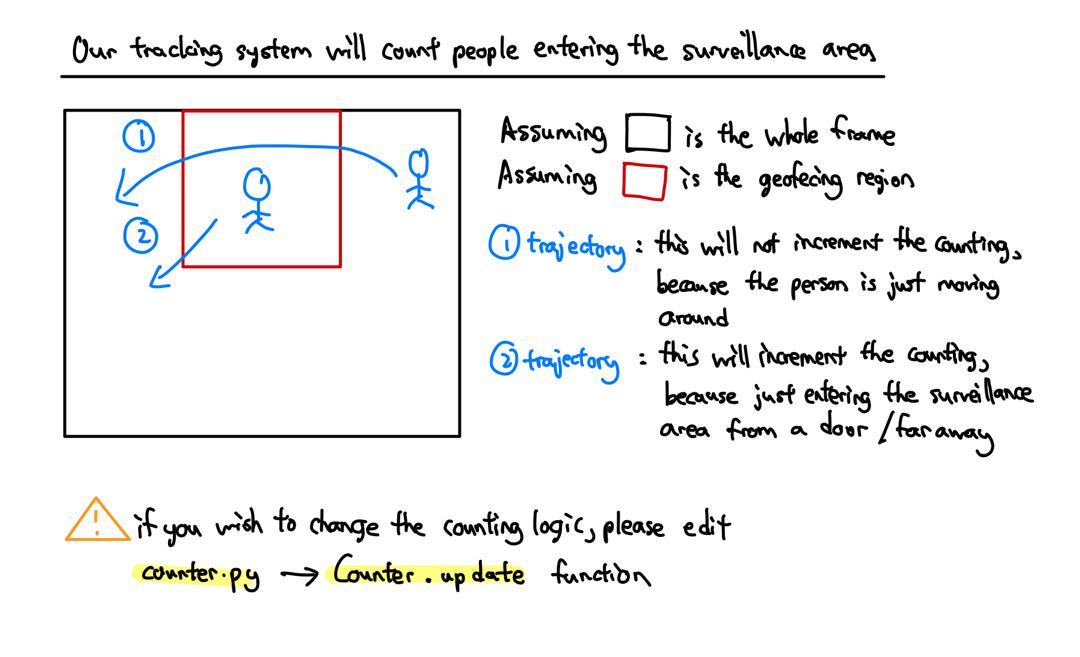 Our tracking system will count people entering the surveillance area
①
②
Assuming is the whole frame
Assuming is the geofecing region
① trajectory : this will not increment the counting,
because the person is just moving
around
② trajectory : this will increment the counting,
because just entering the surveillance
area from a door / far away
! if you wish to change the counting logic, please edit
counter.py → Counter.update function